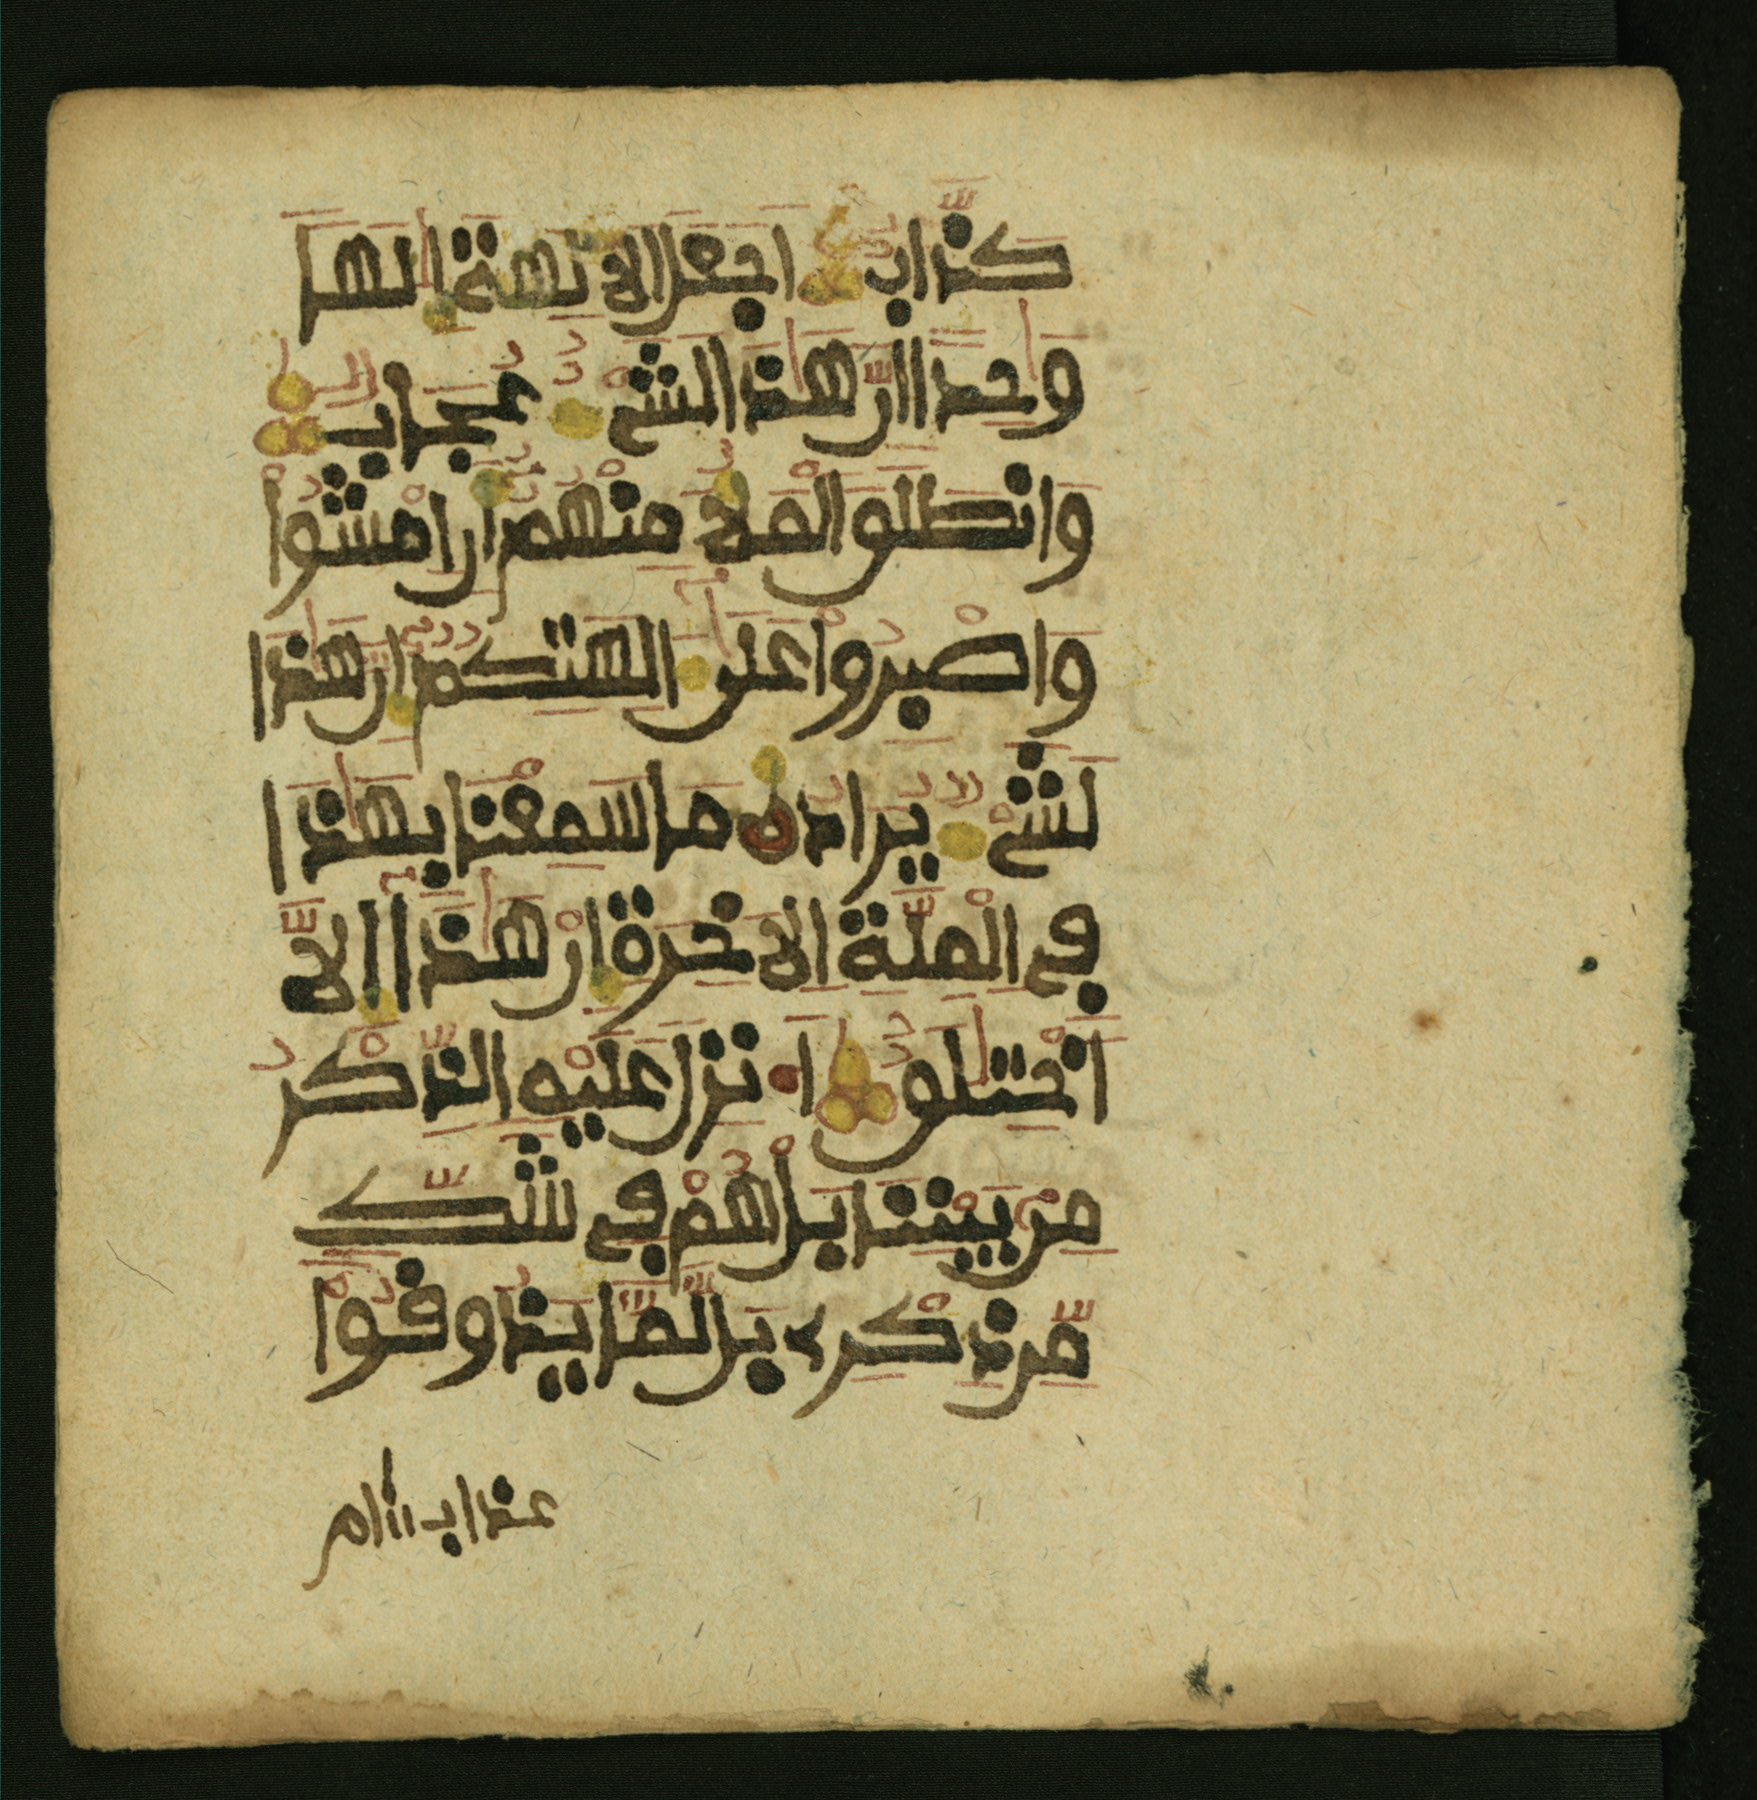 كَذَّابٌ اَجَعَلَ الَالِهَةَ إِلَٰهًا
وَٰحِدًا اِنَّ هَٰذَا لَشَيْءٌ عُجَابٌ
وَانطَلَقَ الْمَلَأُ مِنْهُمُ أَنِ امْشُوا
وَاصْبِرُوا عَلَىٰ ءَالِهَتِكُمُ إِنَّ هَٰذَا
لَشَيْءٌ يُرَادُ مَا سَمِعْنَا بِهَٰذَا
فِي الْمِلَّةِ الَاخِرَةِ إِنْ هَٰذَا إِلَّا
اَخْتِلَٰقٌ أَءُنزِلَ عَلَيْهِ الذِّكْرُ
مِن بَيْنِنَا بَلْ هُمْ فِي شَكٍّ
مِّن ذِكْرِي بَل لَّمَّا يَذُوقُوا
عذاب ام